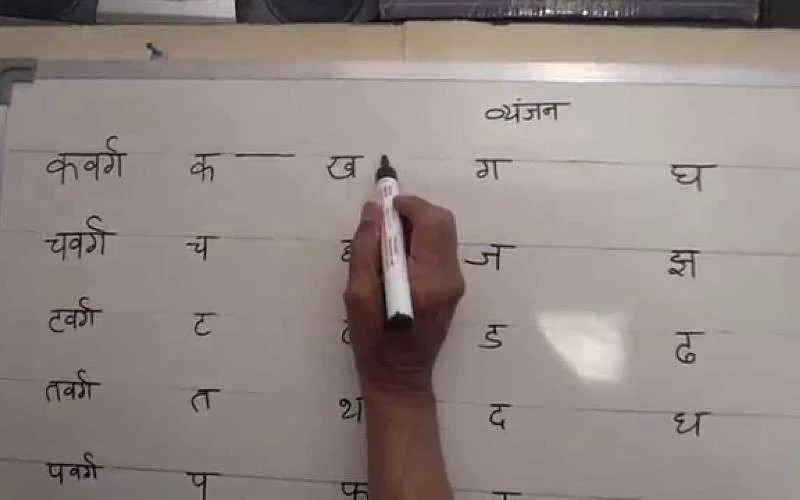 व्यंजन
कवर्ग क ख ग घ
चवर्ग च ज झ
टवर्ग ट ड ढ
तवर्ग त थ द ध
पवर्ग प फ